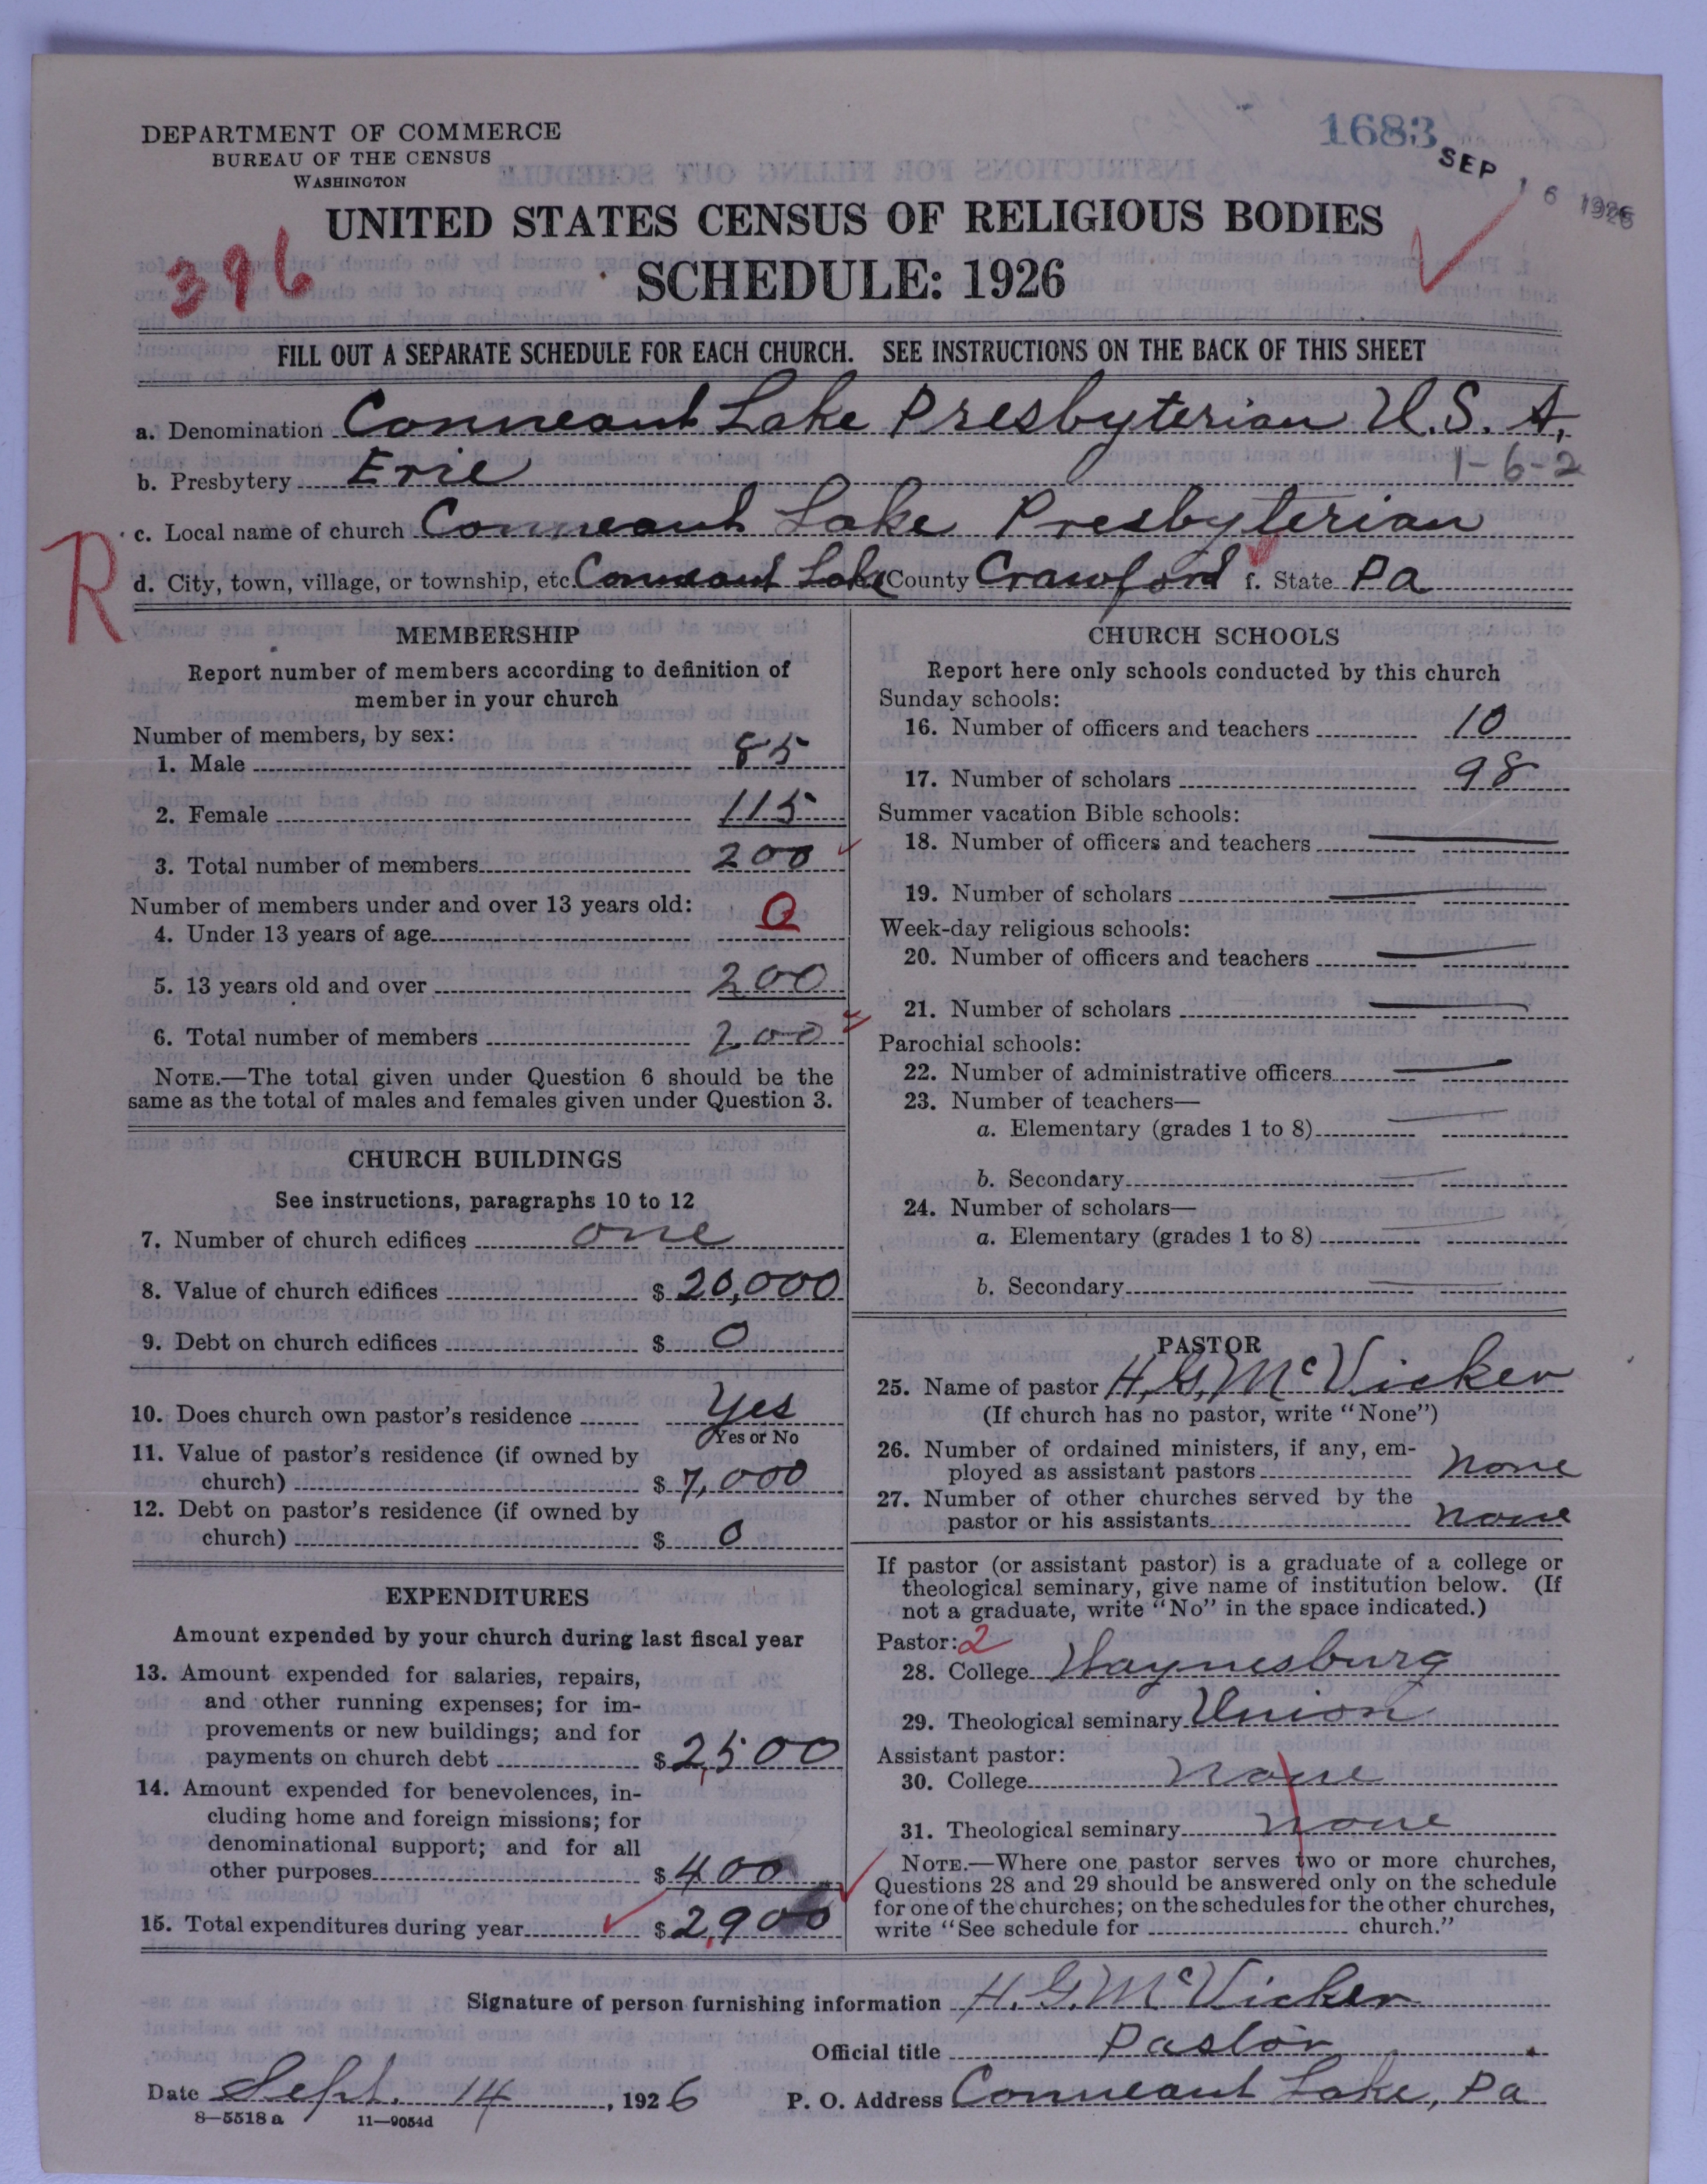 DEPARTMENT OF COMMERCE
BUREAU OF THE CENSUS
WASHINGTON
1683
SEP 16 1926
UNITED STATES CENSUS OF RELIGIOUS BODIES
396
SCHEDULE: 1926
FILL OUT A SEPARATE SCHEDULE FOR EACH CHURCH. SEE INSTRUCTIONS ON THE BACK OF THIS SHEET
a. Denomination Conneaut Lake Presbyterian U.S.A.
1-6-2
b. Presbytery Erie
c. Local name of church Conneaut Lake Presbyterian
R
d. City, town, village, or township, etc. Conneaut Lake County Crawford f. State Pa
MEMBERSHIP
Report number of members according to definition of
member in your church
Number of members, by sex:
1. Male 85
2. Female 115
3. Total number of members 200
Number of members under and over 13 years old:
4. Under 13 years of age 0
5. 13 years old and over 200
6. Total number of members 200
NOTE.—The total given under Question 6 should be the
same as the total of males and females given under Question 3.
CHURCH BUILDINGS
See instructions, paragraphs 10 to 12
7. Number of church edifices one
8. Value of church edifices $ 20,000
9. Debt on church edifices $ 0
10. Does church own pastor's residence Yes
Yes or No
11. Value of pastor's residence (if owned by
church) $ 7,000
12. Debt on pastor's residence (if owned by
church) $ 0
EXPENDITURES
Amount expended by your church during last fiscal year
13. Amount expended for salaries, repairs,
and other running expenses; for im-
provements or new buildings; and for
payments on church debt $ 2,500
14. Amount expended for benevolences, in-
cluding home and foreign missions; for
denominational support; and for all
other purposes $ 400
15. Total expenditures during year $ 2,900
CHURCH SCHOOLS
Report here only schools conducted by this church
Sunday schools:
16. Number of officers and teachers 10
17. Number of scholars 98
Summer vacation Bible schools:
18. Number of officers and teachers
19. Number of scholars
Week-day religious schools:
20. Number of officers and teachers
21. Number of scholars
Parochial schools:
22. Number of administrative officers
23. Number of teachers—
a. Elementary (grades 1 to 8)
b. Secondary
24. Number of scholars—
a. Elementary (grades 1 to 8)
b. Secondary
PASTOR
25. Name of pastor H.G. McVicker
(If church has no pastor, write "None")
26. Number of ordained ministers, if any, em-
ployed as assistant pastors none
27. Number of other churches served by the
pastor or his assistants none
If pastor (or assistant pastor) is a graduate of a college or
theological seminary, give name of institution below. (If
not a graduate, write "No" in the space indicated.)
Pastor: 2
28. College Waynesburg
29. Theological seminary Union
Assistant pastor:
30. College none
31. Theological seminary none
NOTE.—Where one pastor serves two or more churches,
Questions 28 and 29 should be answered only on the schedule
for one of the churches; on the schedules for the other churches,
write "See schedule for church."
Signature of person furnishing information H. G. McVicker
Official title Pastor
Date Sept. 14, 1926 P. O. Address Conneaut Lake, Pa
8—5518 a 11—9054d